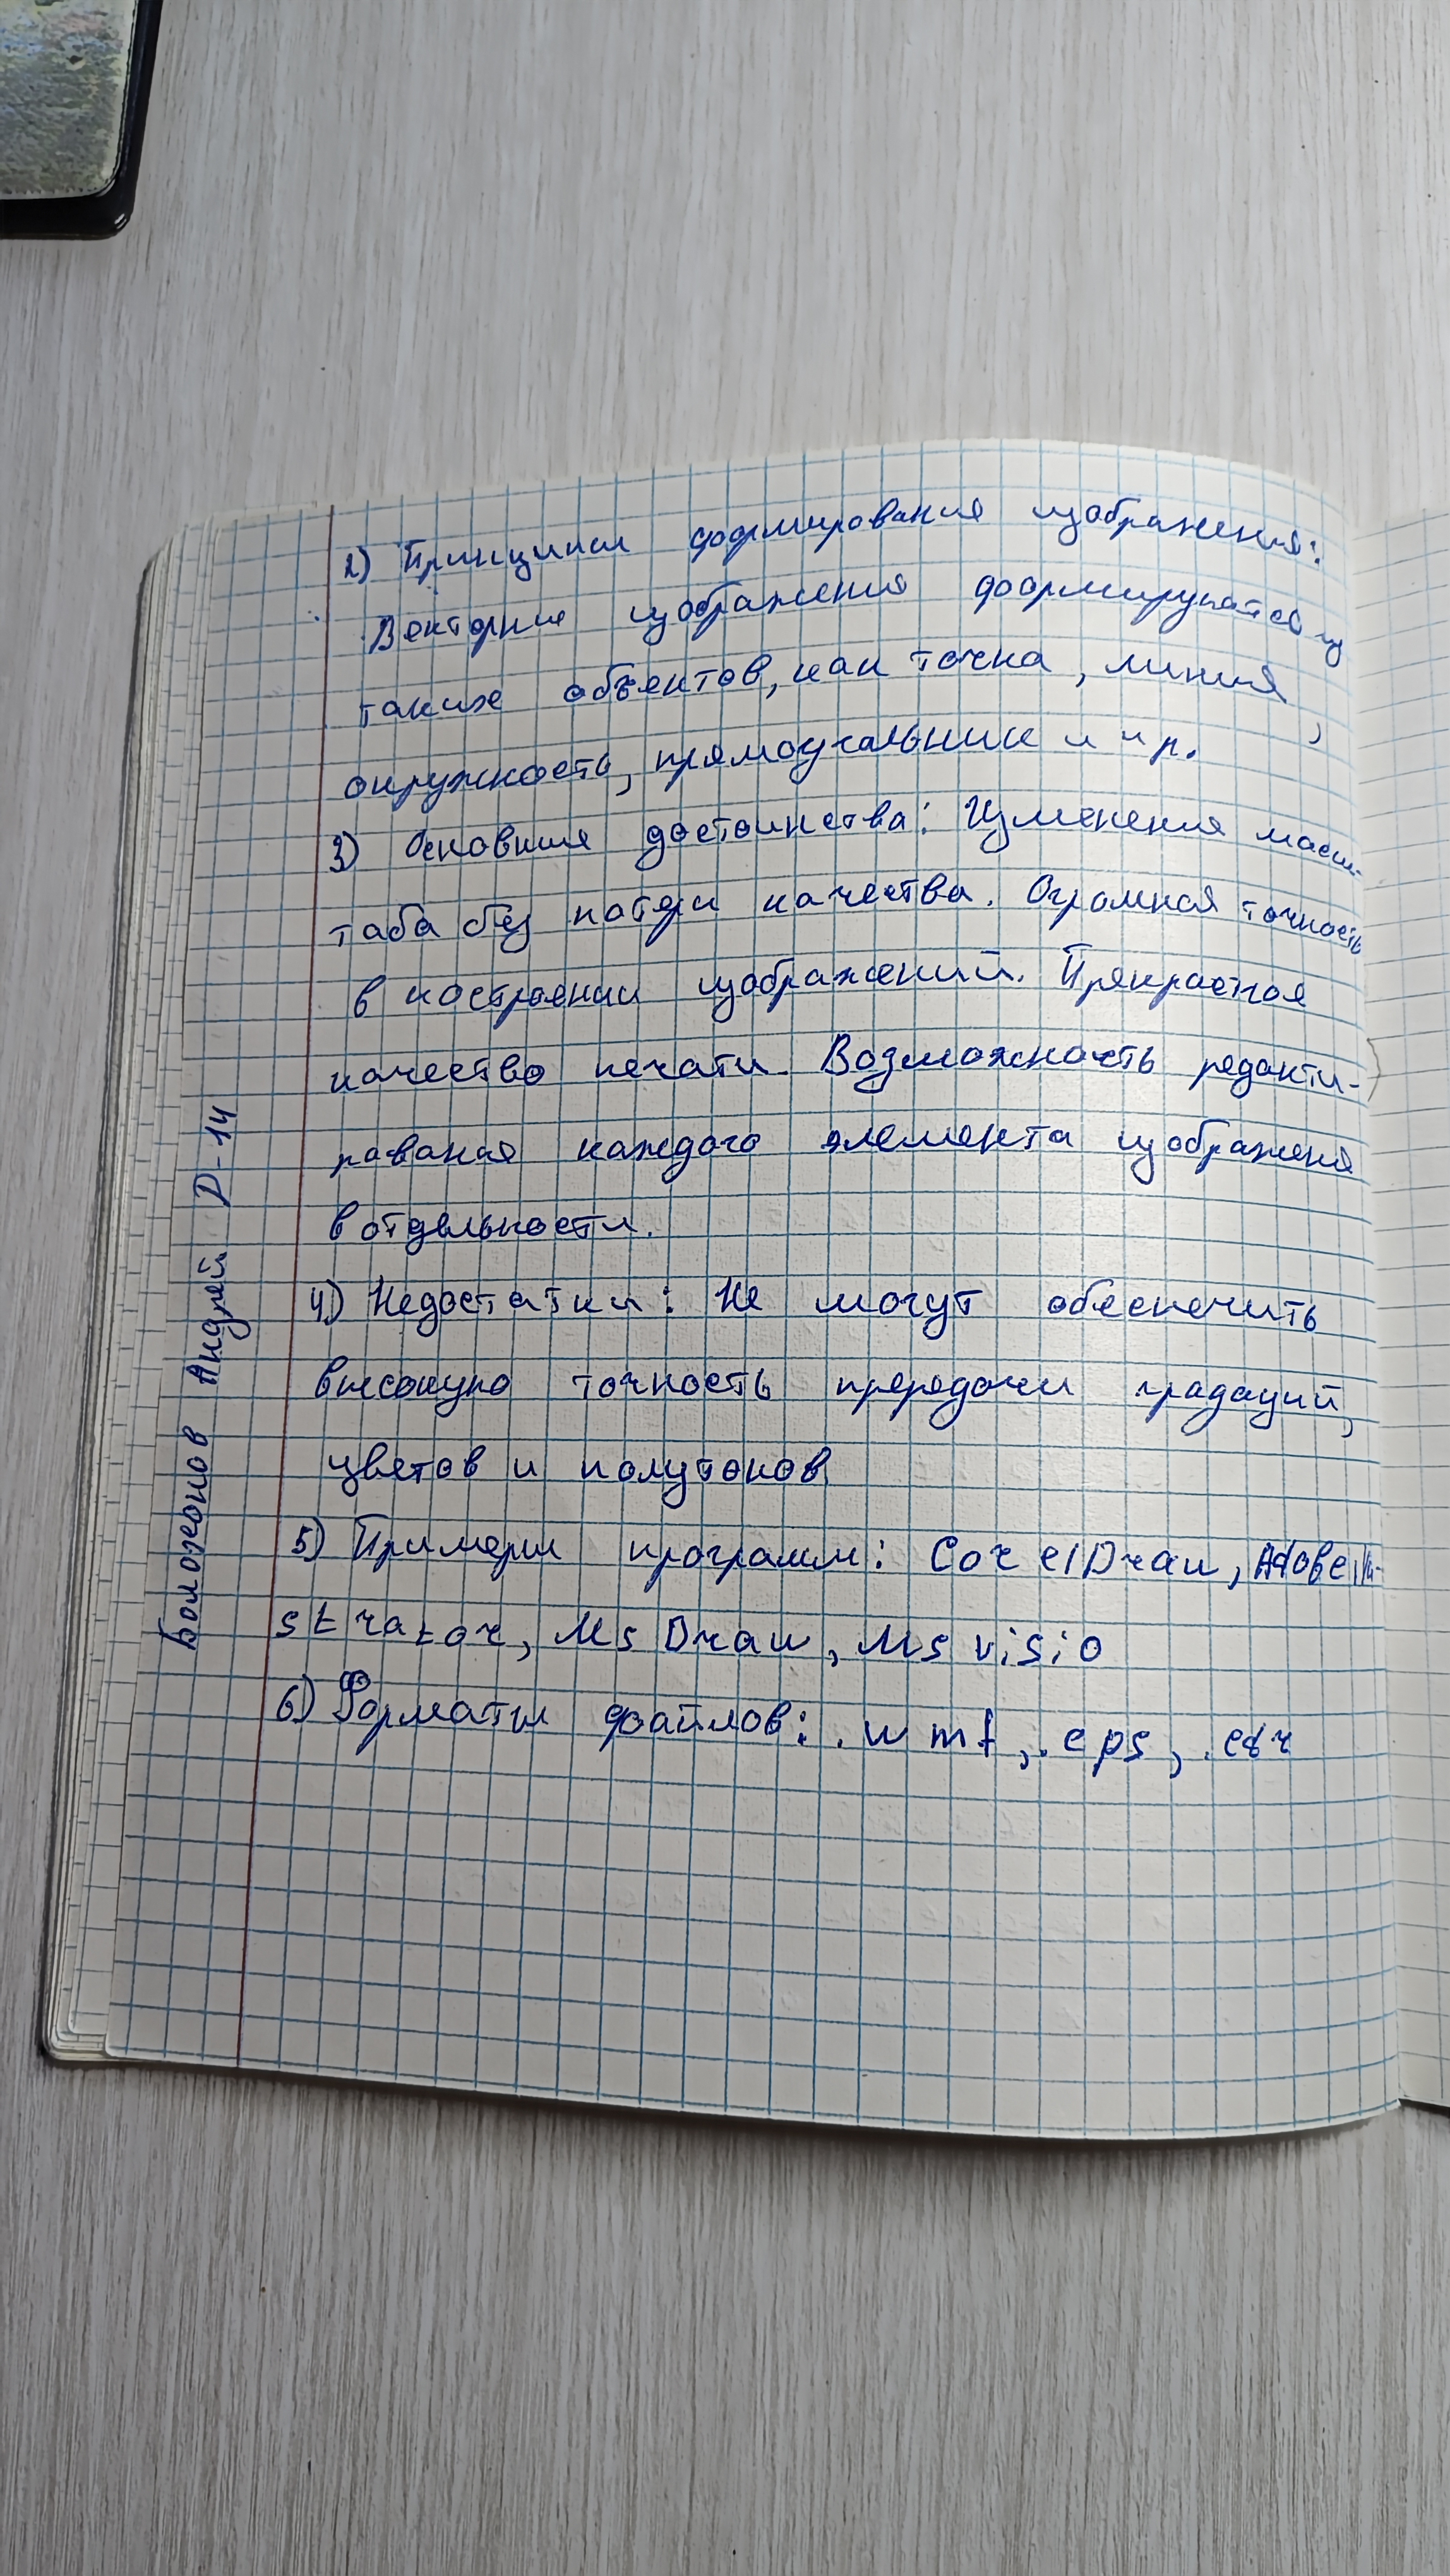 2) Принципы формирования изображения:
Векторные изображения формируются из
таких объектов, как точка, линия,
окружность, прямоугольник и пр.
3) Основные достоинства: Изменения масш-
таба без потери качества. Огромная точность
в построении изображений. Прекрастное
качество печати. Возможность редакти-
рования каждого элемента изображения
в отдельности.
4) Недостатки: Не могут обеспечить
высокую точность передачи градаций,
цветов и полутонов
5) Примеры программ: CorelDraw, Adobe Illu-
strator, Ms Draw, Ms visio
6) Форматы файлов: .wmf, .eps, .cdr
Боложонов Андрей Д-14